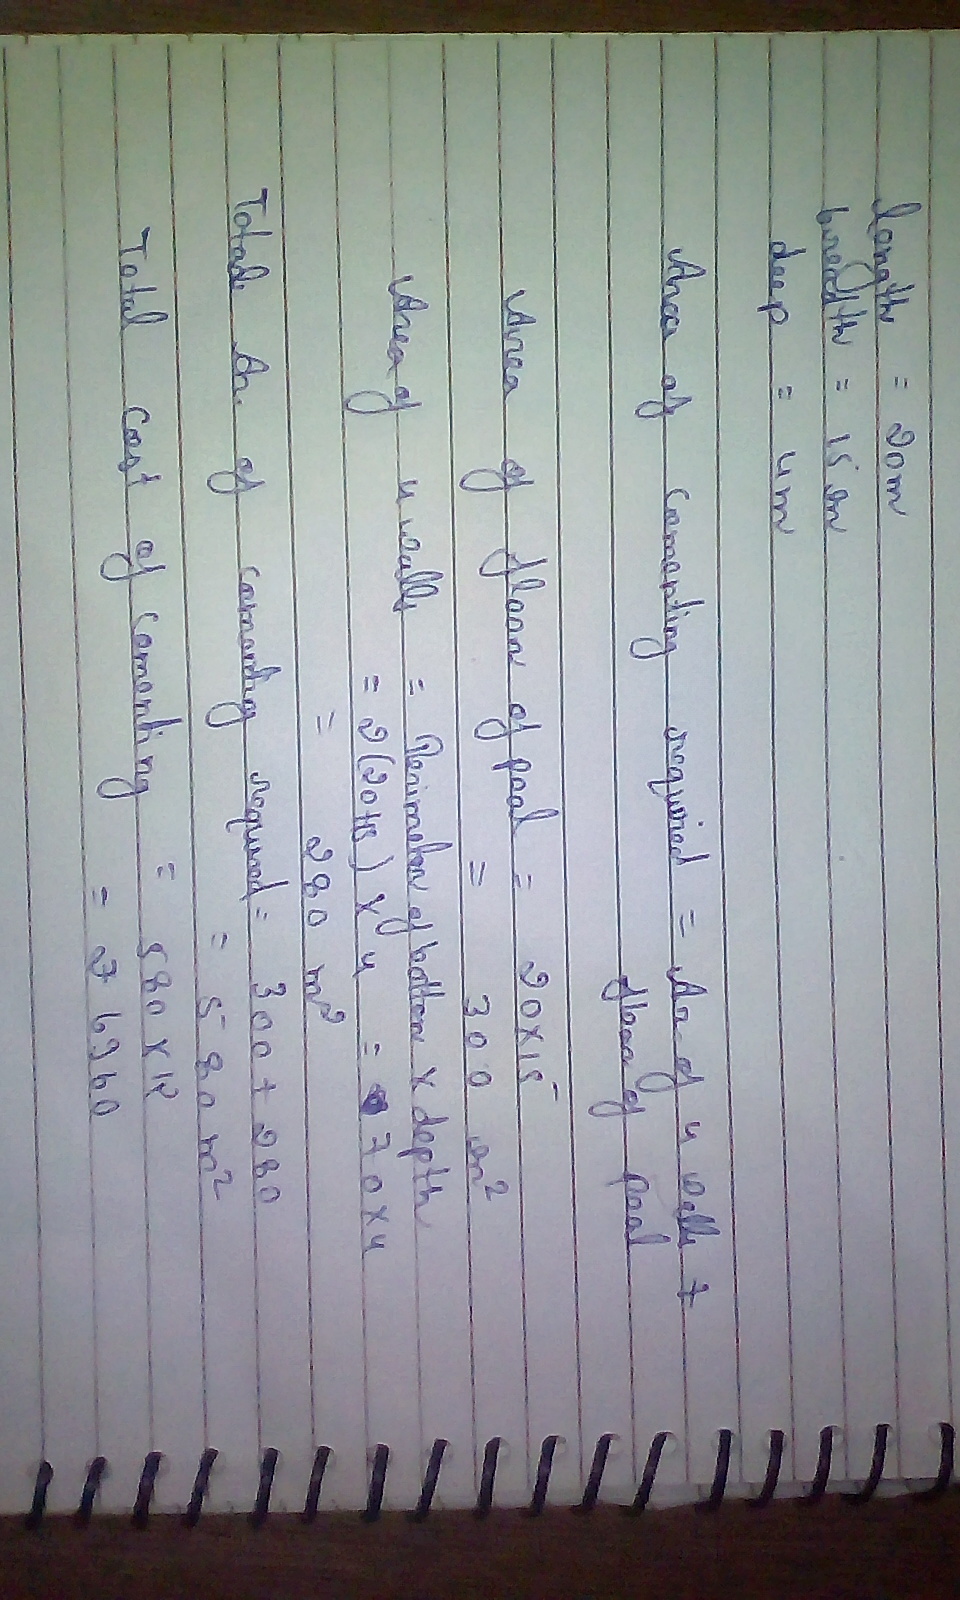 length = 20m
breadth = 15m
deep = 4m
Area of comenting required = Ar of 4 walls +
floor of pool
Area of floor of pool = 20x15
= 300 m²
Area of 4 walls = Perimeter of bottom x depth
= 2(20+15) x 4 = 70x4
= 280 m²
Total Ar. of comenting required = 300 + 280
= 580 m²
Total Cost of comenting = 580 x 12
= 7 6960